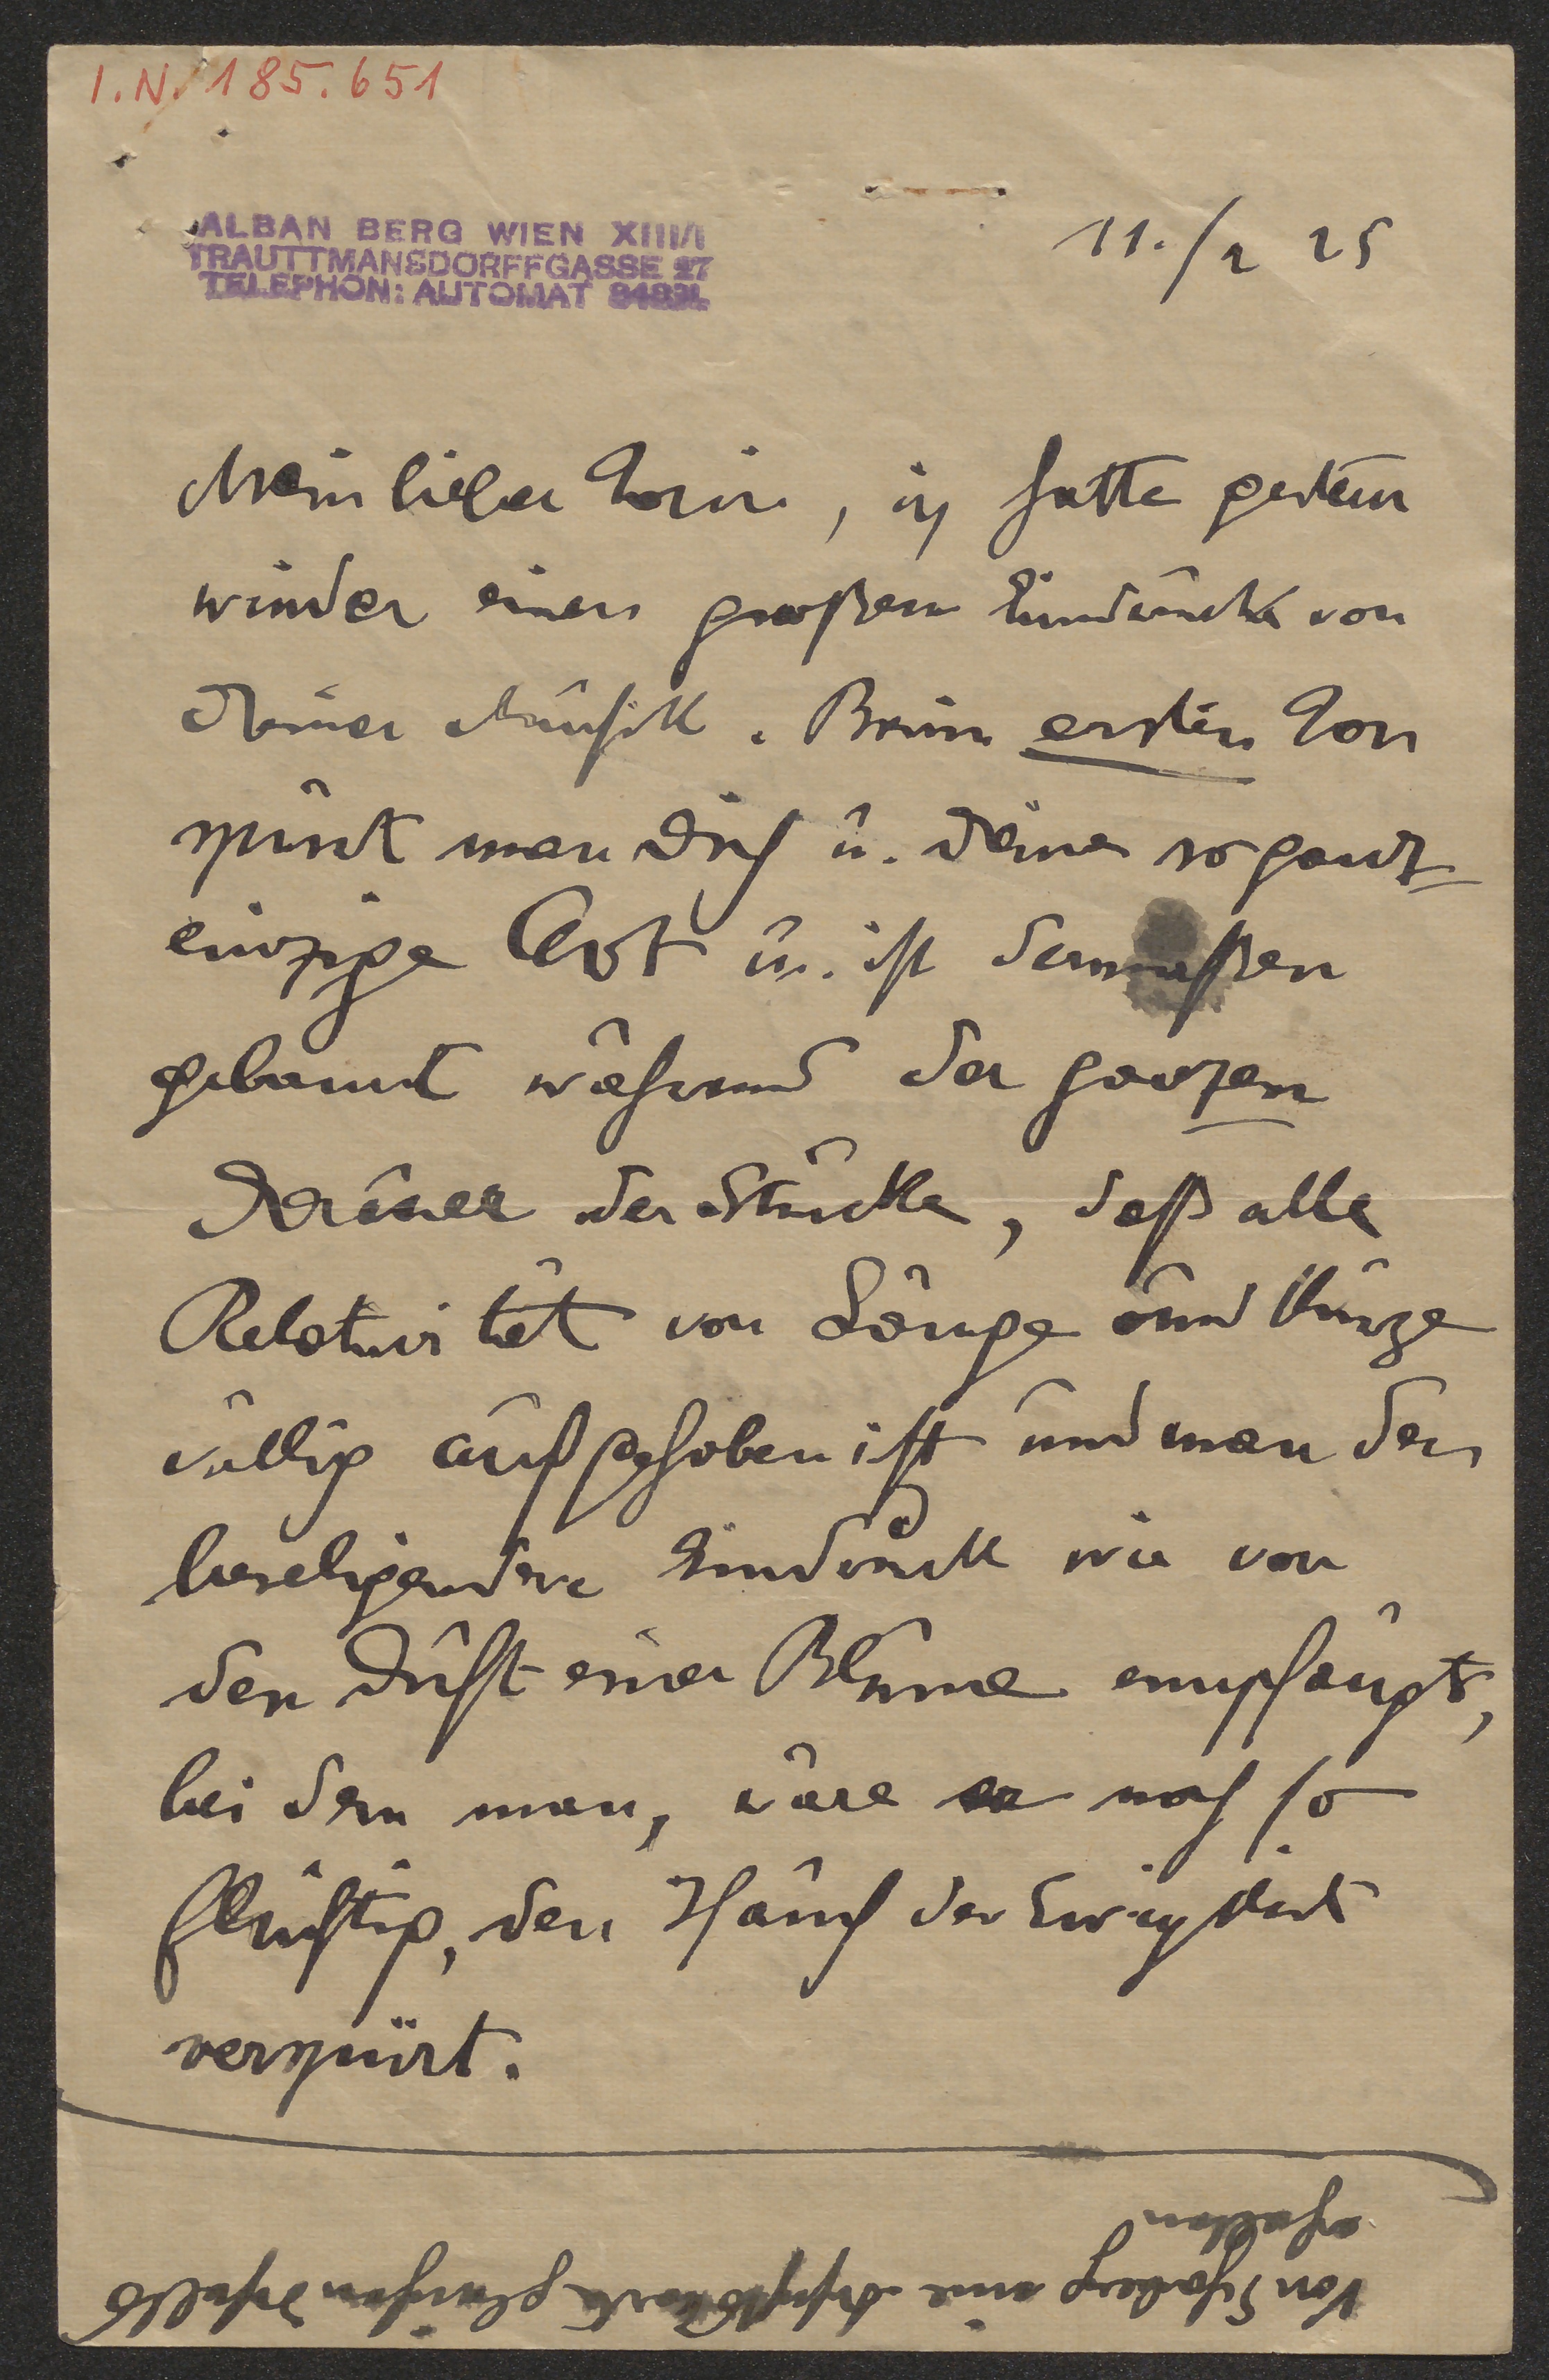 I.N. 185.651
ALBAN BERG WIEN XIII/1
TRAUTTMANSDORFFGASSE 27
TELEPHON: AUTOMAT 84831
11./2 25
Mein lieber Toni, ich hatte gestern
wieder einen großen Eindruck von
Deiner Musik. Beim ersten Ton
spürt man Dich u. Deine so ganz
einzige Art u. ist dermaßen
gebannt während der ganzen
Dauer der Stücke, daß alle
Relativität von Länge und Kürze
völlig aufgehoben ist und man den
beseligenden Eindruck wie von
den Duft einer Blume empfängt,
bei dem man, wäre er noch so
flüchtig, den Hauch der Ewigkeit
verspürt.
Von Schönberg eine Ansichtskarte gleichen Inhalts
erhalten